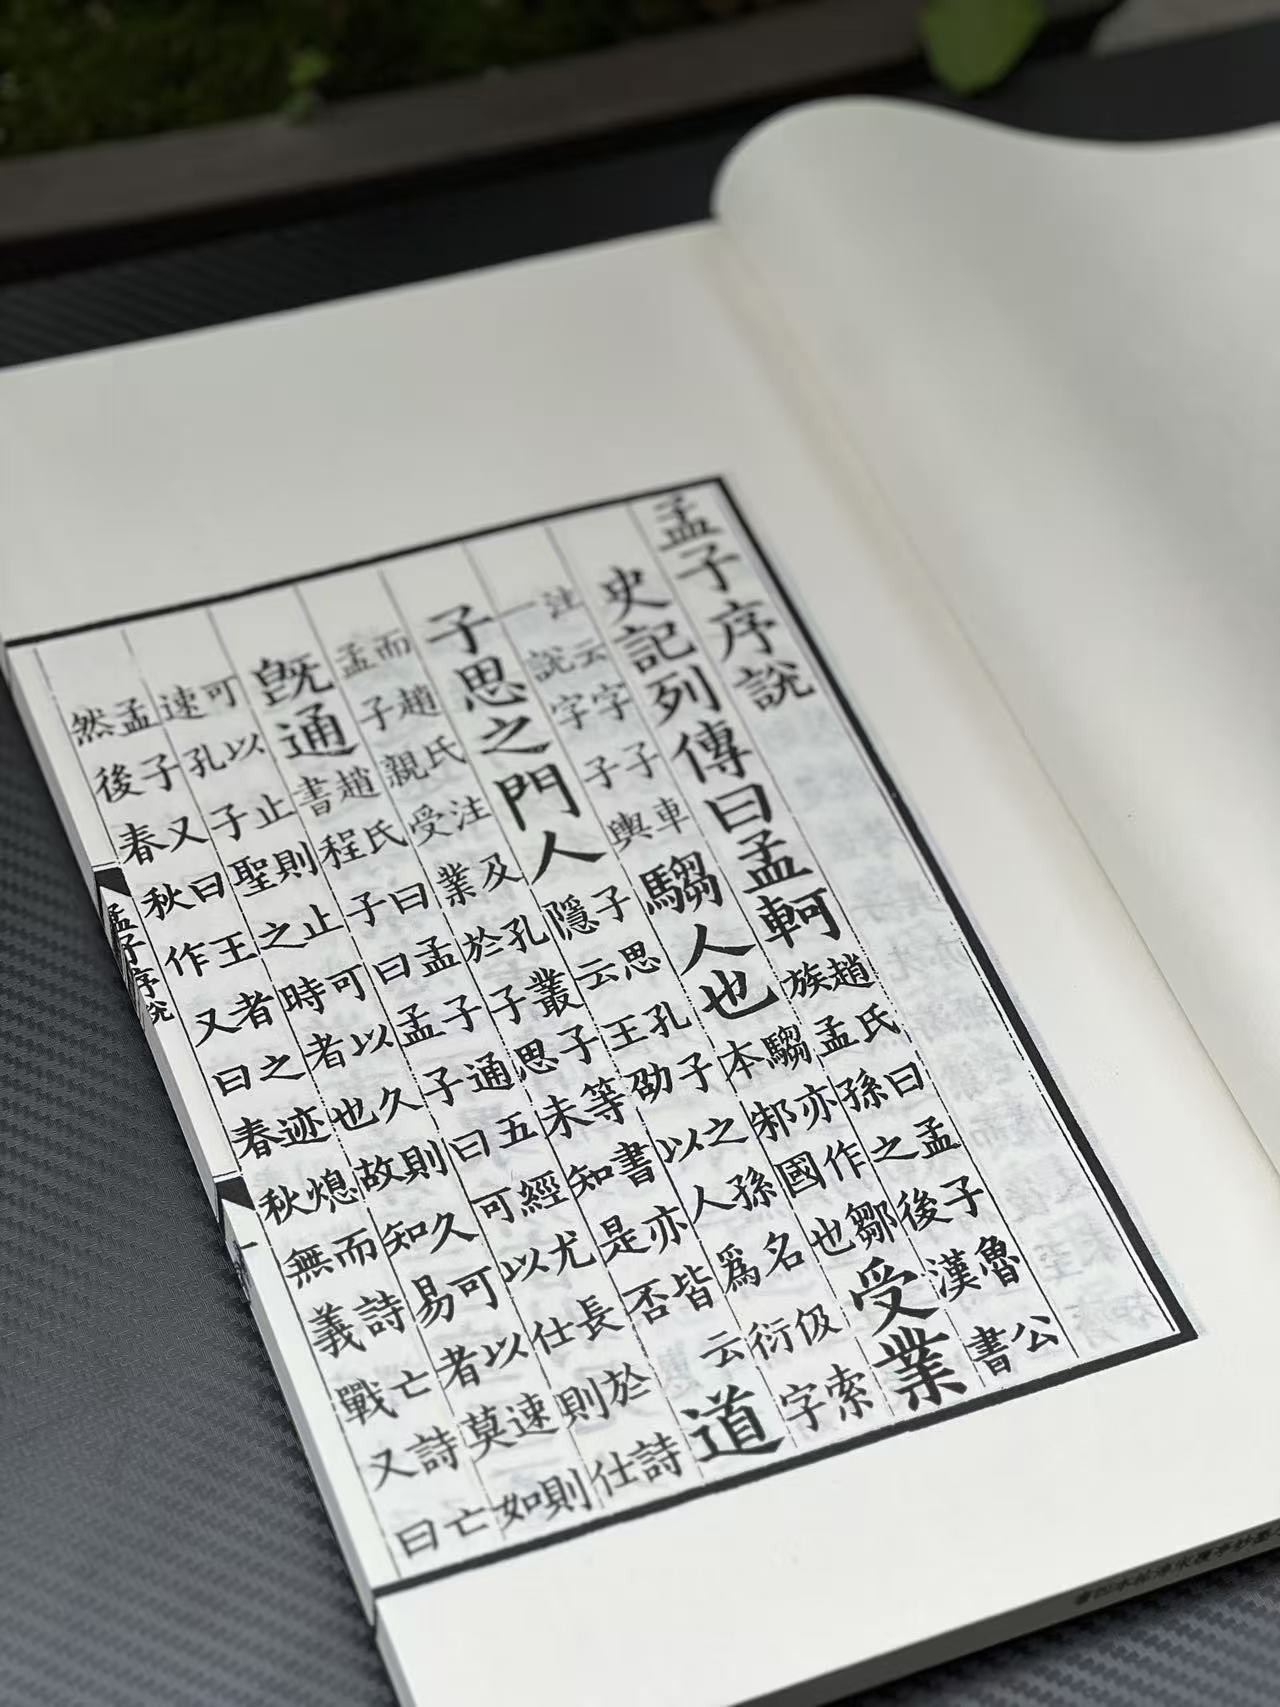 孟子序說
史記列傳曰孟軻
趙氏曰孟子魯公
族孟孫之後漢書
注云字子車
一說字子輿
騶人也
騶亦作鄒
本邾國也
受業
子思之門人
子思孔子之孫名伋索
隱云王劭以人爲衍字
而趙氏注及孔叢子等書亦皆云
孟子親受業於子思未知是否
道
旣通
趙氏曰孟子通五經尤長於詩
書程子曰孟子曰可以仕則仕
可以止則止可以久則久可以速則
速孔子聖之時者也故知易者莫如
孟子又曰王者之迹熄而詩亡詩亡
然後春秋作又曰春秋無義戰又曰
孟子序說
一